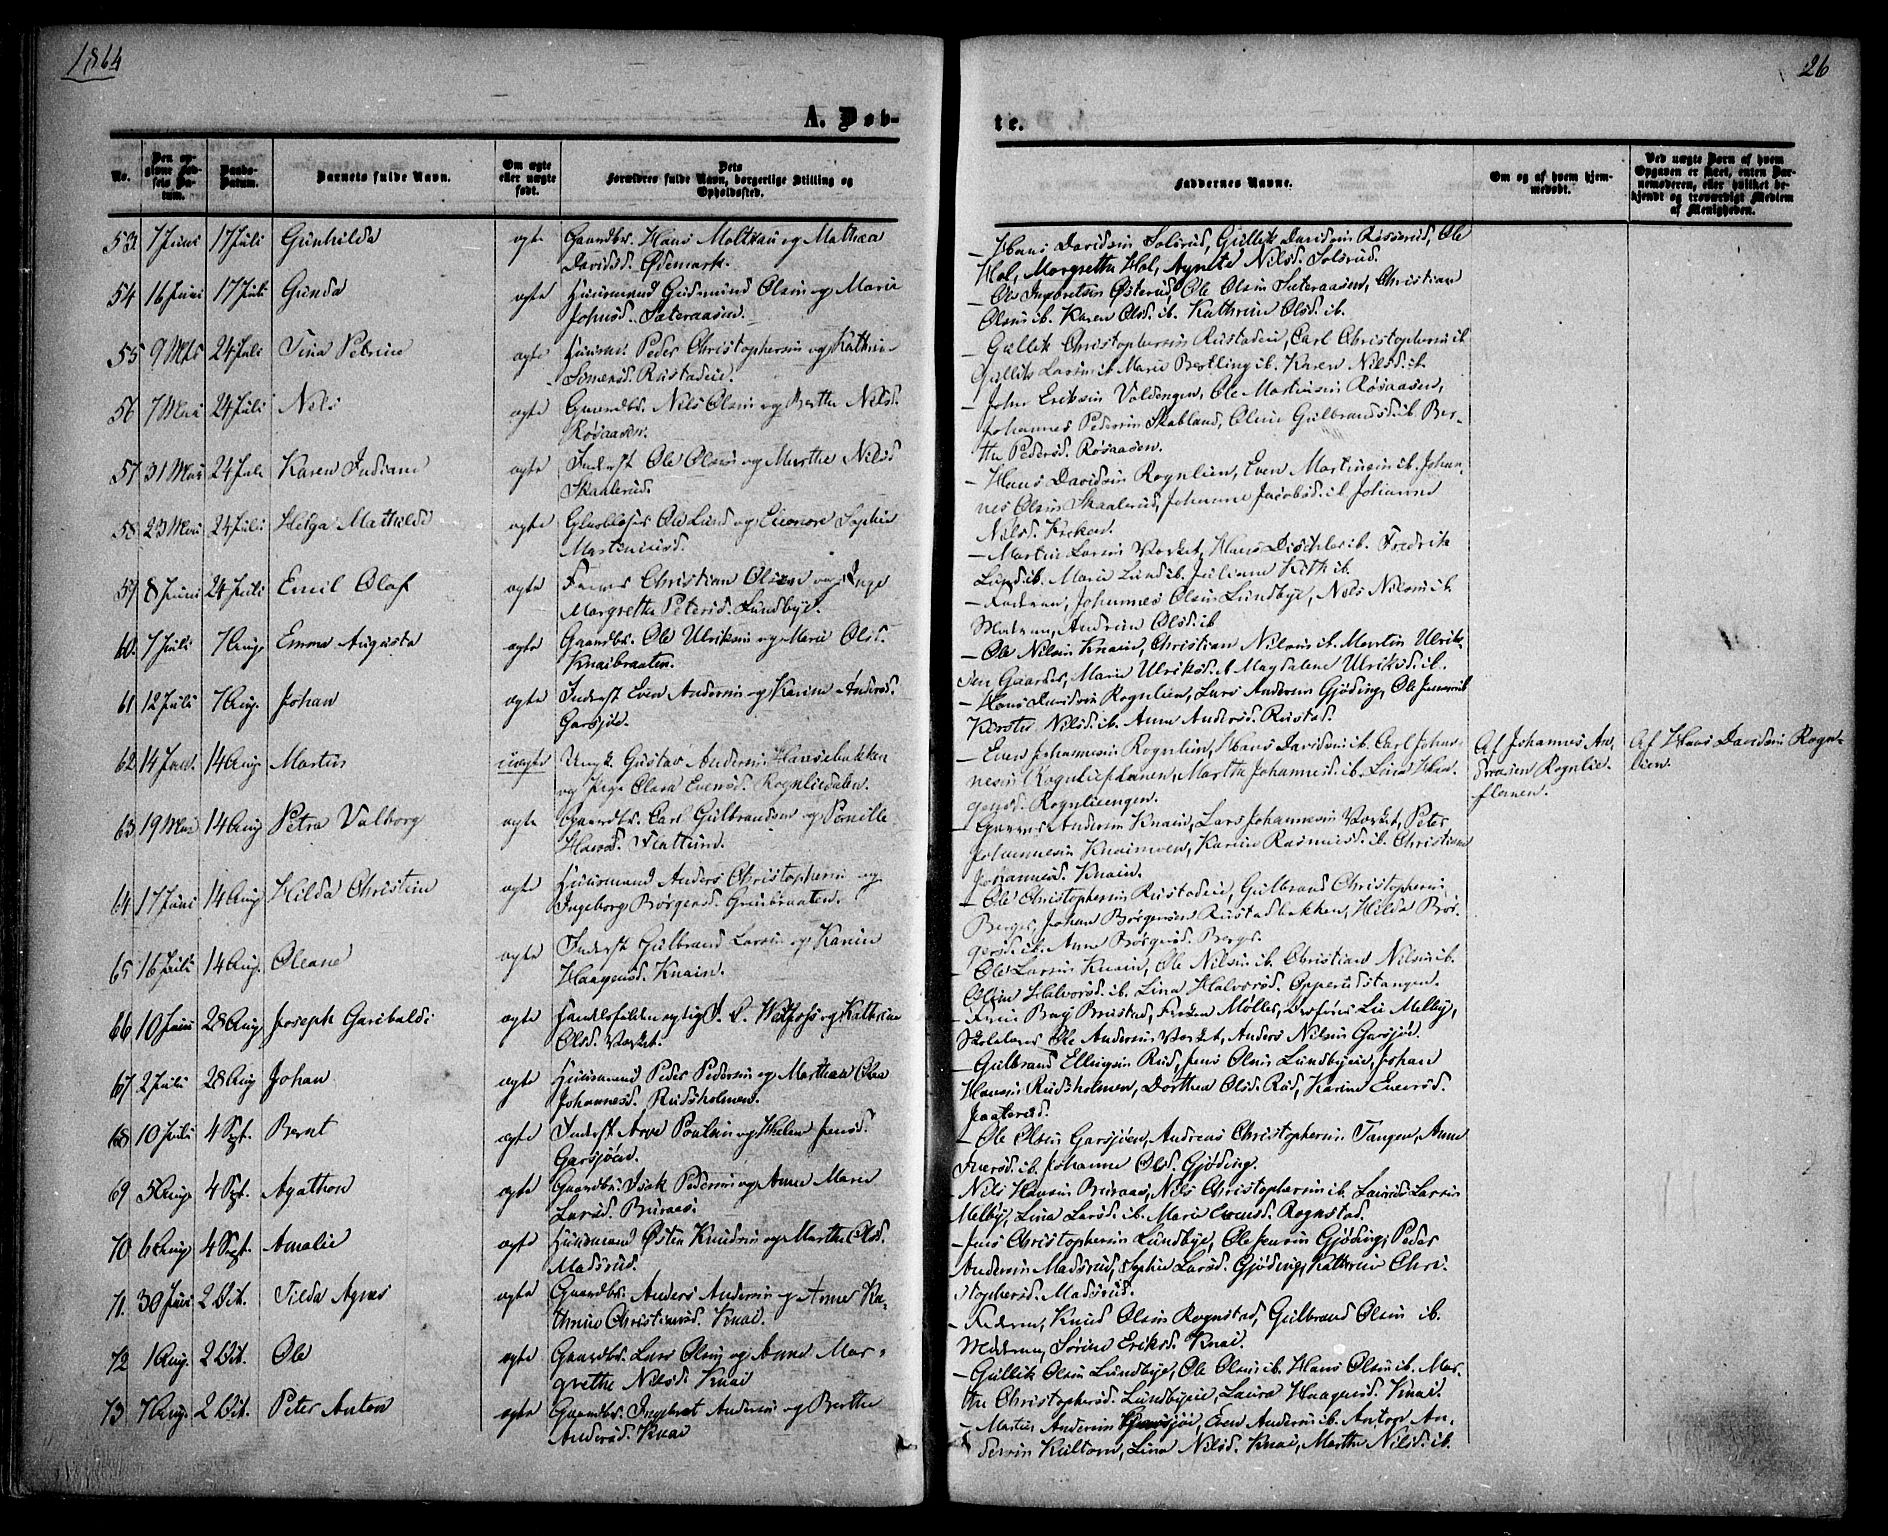 1864
26
A. Døb-
te.
No.
Den op-
givne Fød-
sels Da-
tum.
Daabs-
Datum.
Barnets fulde Navn.
Om ægte
eller uægte
født.
Dets
Forældres fulde Navn, borgerlige Stilling og
Opholdssted.
Faddernes Navne.
Om og af hvem hjem-
medøbt.
Ved uægte Børn af hvem
Opgaven er skeet, enten Bar-
nemoderen, eller hvilket be-
kjendt og troværdigt Medlem
af Menigheden.
53 7 Juni 17 Juli Gunhilda ægte Gaardbr. Hans Moltzau og Mathea
Davidsd. Ødemark.
Hans Davidsen Solsrud, Gullik Davidsen, Ole
Hol, Margrethe Hol, Agnete Nilsd. Solsrud.
54 16 Juni 17 Juli Gunda ægte Huusmand Gudmund Olsen og Marie
Johnsd. Sæteraasen.
Ole Ingbretsen Østerud, Ole Olsen Sæteraasen, Christian
Olsen ib. Karen Olsd. ib. Kathrine Olsd. ib.
55 24 Juli Tina Petrine ægte Huusm. Peder Christophersen og Kathrine
Rustadeie.
Gullik Christophersen Rustadeie, Carl Christophersen ib.
Gullik Larsen ib. Marie ib. Karen Nilsd. ib.
56 7 Mai 24 Juli Nils ægte Gaardbr. Nils Olsen og Berthe Nilsd.
Røsaasen.
John Eriksen Voldengen, Ole Martinsen Røsaasen,
Johannes Pedersen Skabland, Oline Gulbrandsd. ib. Ber-
the Pedersd. Røsaasen.
57 31 Mai 24 Juli Karen Indiane ægte Inderst Ole Olsen og Marthe Nilsd.
Skaalerud.
Hans Davidsen Rognlien, Even Martinsen ib. Johan-
nes Olsen Skaalerud, Johanne Jacobsd. ib. Johanne
Nilsd.
58 23 Mai 24 Juli Helga Mathilde ægte Glasblæser Ole Lund og Eleonore Sophie
Martiniusd.
Martin Larsen Værket, Hans ib. Fredrik
Lund ib. Marie Lund ib. Juliane ib.
59 8 Juni 24 Juli Emil Olaf ægte Christian Olsen og Inge
Margrethe Petersd. Lundbye.
Faderen, Johannes Olsen Lundbye, Nils Nilsen ib.
Moderen, Andrine Olsd. ib.
60 7 Juli 7 Aug. Emma Augusta ægte Gaardbr. Ole Ulriksen og Marie Olsd.
Knaibraaten.
Ole Nilsen Knain, Christian Nilsen ib. Martin Ulrik-
sen Gaarder, Marie Ulriksd. ib. Magdalene Ulriksd. ib.
61 12 Juli 7 Aug. Johan ægte Inderst Even Andersen og Karine Andersd.
Garsjøe.
Hans Davidsen Rognlien, Lars Andersen Gjøding, Ole
Kerstie Nilsd. ib. Anne Andersd. Rustad.
62 14 14 Aug. Martin uægte Ungk. Gustav Andersen Hansebakken
og Pige Clara Evensd. Rognliedalen.
Even Johannesen Rognlien, Hans Davidsen ib. Carl Johan-
nesen Rognlieflanen, Marthe Johannesd. ib. Lina Haa-
gensd. Rognlieengen.
Af Johannes An-
dreasen Rognlie-
flanen.
Af Hans Davidsen Rogn-
lien.
63 19 Mai 14 Aug. Petra Valborg ægte Gaardbr. Carl Gulbrandsen og Pernille
Flattum.
Andersen Knain, Lars Johannesen Værket, Peter
Johannesen Knaimoen, Karine Rasmusd. ib. Christiane
Johannesd. Knain.
64 17 Juni 14 Aug. Hilda Christine ægte Huusmand Anders Christophersen og
Ingeborg Børgersd. Grinibraaten.
Ole Christophersen Rustadeie, Gulbrand Christophersen
Berger, Johan Børgersen Rustadbakken, Hilda Bør-
gersd. ib. Anne Børgersd. Berger.
65 16 Juli 14 Aug. Oleane ægte Inderst Gulbrand Larsen og Karine
Haagensd. Knain.
Ole Larsen Knain, Ole Nilsen ib. Christian Nilsen ib.
Halvorsd. ib. Lina Halvorsd. Opperudstangen.
66 10 Juni 28 Aug. Joseph Garibaldi ægte Handelsfuldmægtig og Kathrine
Olsd. Værket.
Møller, Lie Melby,
Ole Andersen Værket, Anders Nilsen Garsjø.
67 2 Juli 28 Aug. Johan ægte Huusmand Peder Pedersen og Marthea Olea
Johannesd. Rudsholmen.
Gulbrand Ellingsen Rud, Jens Olsen Lundbyeie, Johan
Hansen Rudsholmen, Dorthea Olsd. Rud, Karine Evensd.
68 10 Juli 4 Sept. Bernt ægte Inderst Arve Poulsen og Helene Jensd.
Garsjøen.
Ole Olsen Garsjøen, Andreas Christophersen Tangen, Anne
Iversd. ib. Johanne Olsd. Gjøding.
69 5 Aug. 4 Sept. Agathon ægte Gaardbr. Isak Pedersen og Anne Marie
Larsd. Buraas.
Nils Hansen Buraas, Nils Christophersen ib. Larsen
Melby, Lina Larsd. ib. Marie Evensd. Rognstad.
70 6 Aug. 4 Sept. Amalie ægte Huusmand Østen Knudsen og Marthe Olsd.
Madsrud.
Jens Christophersen Lundbye, Ole Jensen Gjøding, Peder
Andersen Madsrud, Sophie Larsd. Gjøding, Kathrine Chri-
stophersd. Madsrud.
71 30 Juni 2 Oct. Tilda Agnes ægte Gaardbr. Anders Andersen og Anne Ka-
thrine Christiansd. Knai.
Faderen, Knud Olsen Rognstad, Gulbrand Olsen ib.
Moderen, Sørine Eriksd. Knai.
72 1 Aug. 2 Oct. Ole ægte Gaardbr. Lars Olsen og Anne Mar-
grethe Nilsd. Knai
Gullik Olsen Lundbye, Ole Olsen ib. Hans Olsen ib. Mar-
the Christophersd. Lundbyeie, Laura Haagensd. Knai.
73 7 Aug. 2 Oct. Peter Anton ægte Gaardbr. Ingbret Andersen og Berthe
Andersd. Knai
Martin Andersen Garsjøe, Even Andersen ib. Anton An-
dersen Kultom, Lina Nilsd. Knai, Marthe Nilsd. ib.